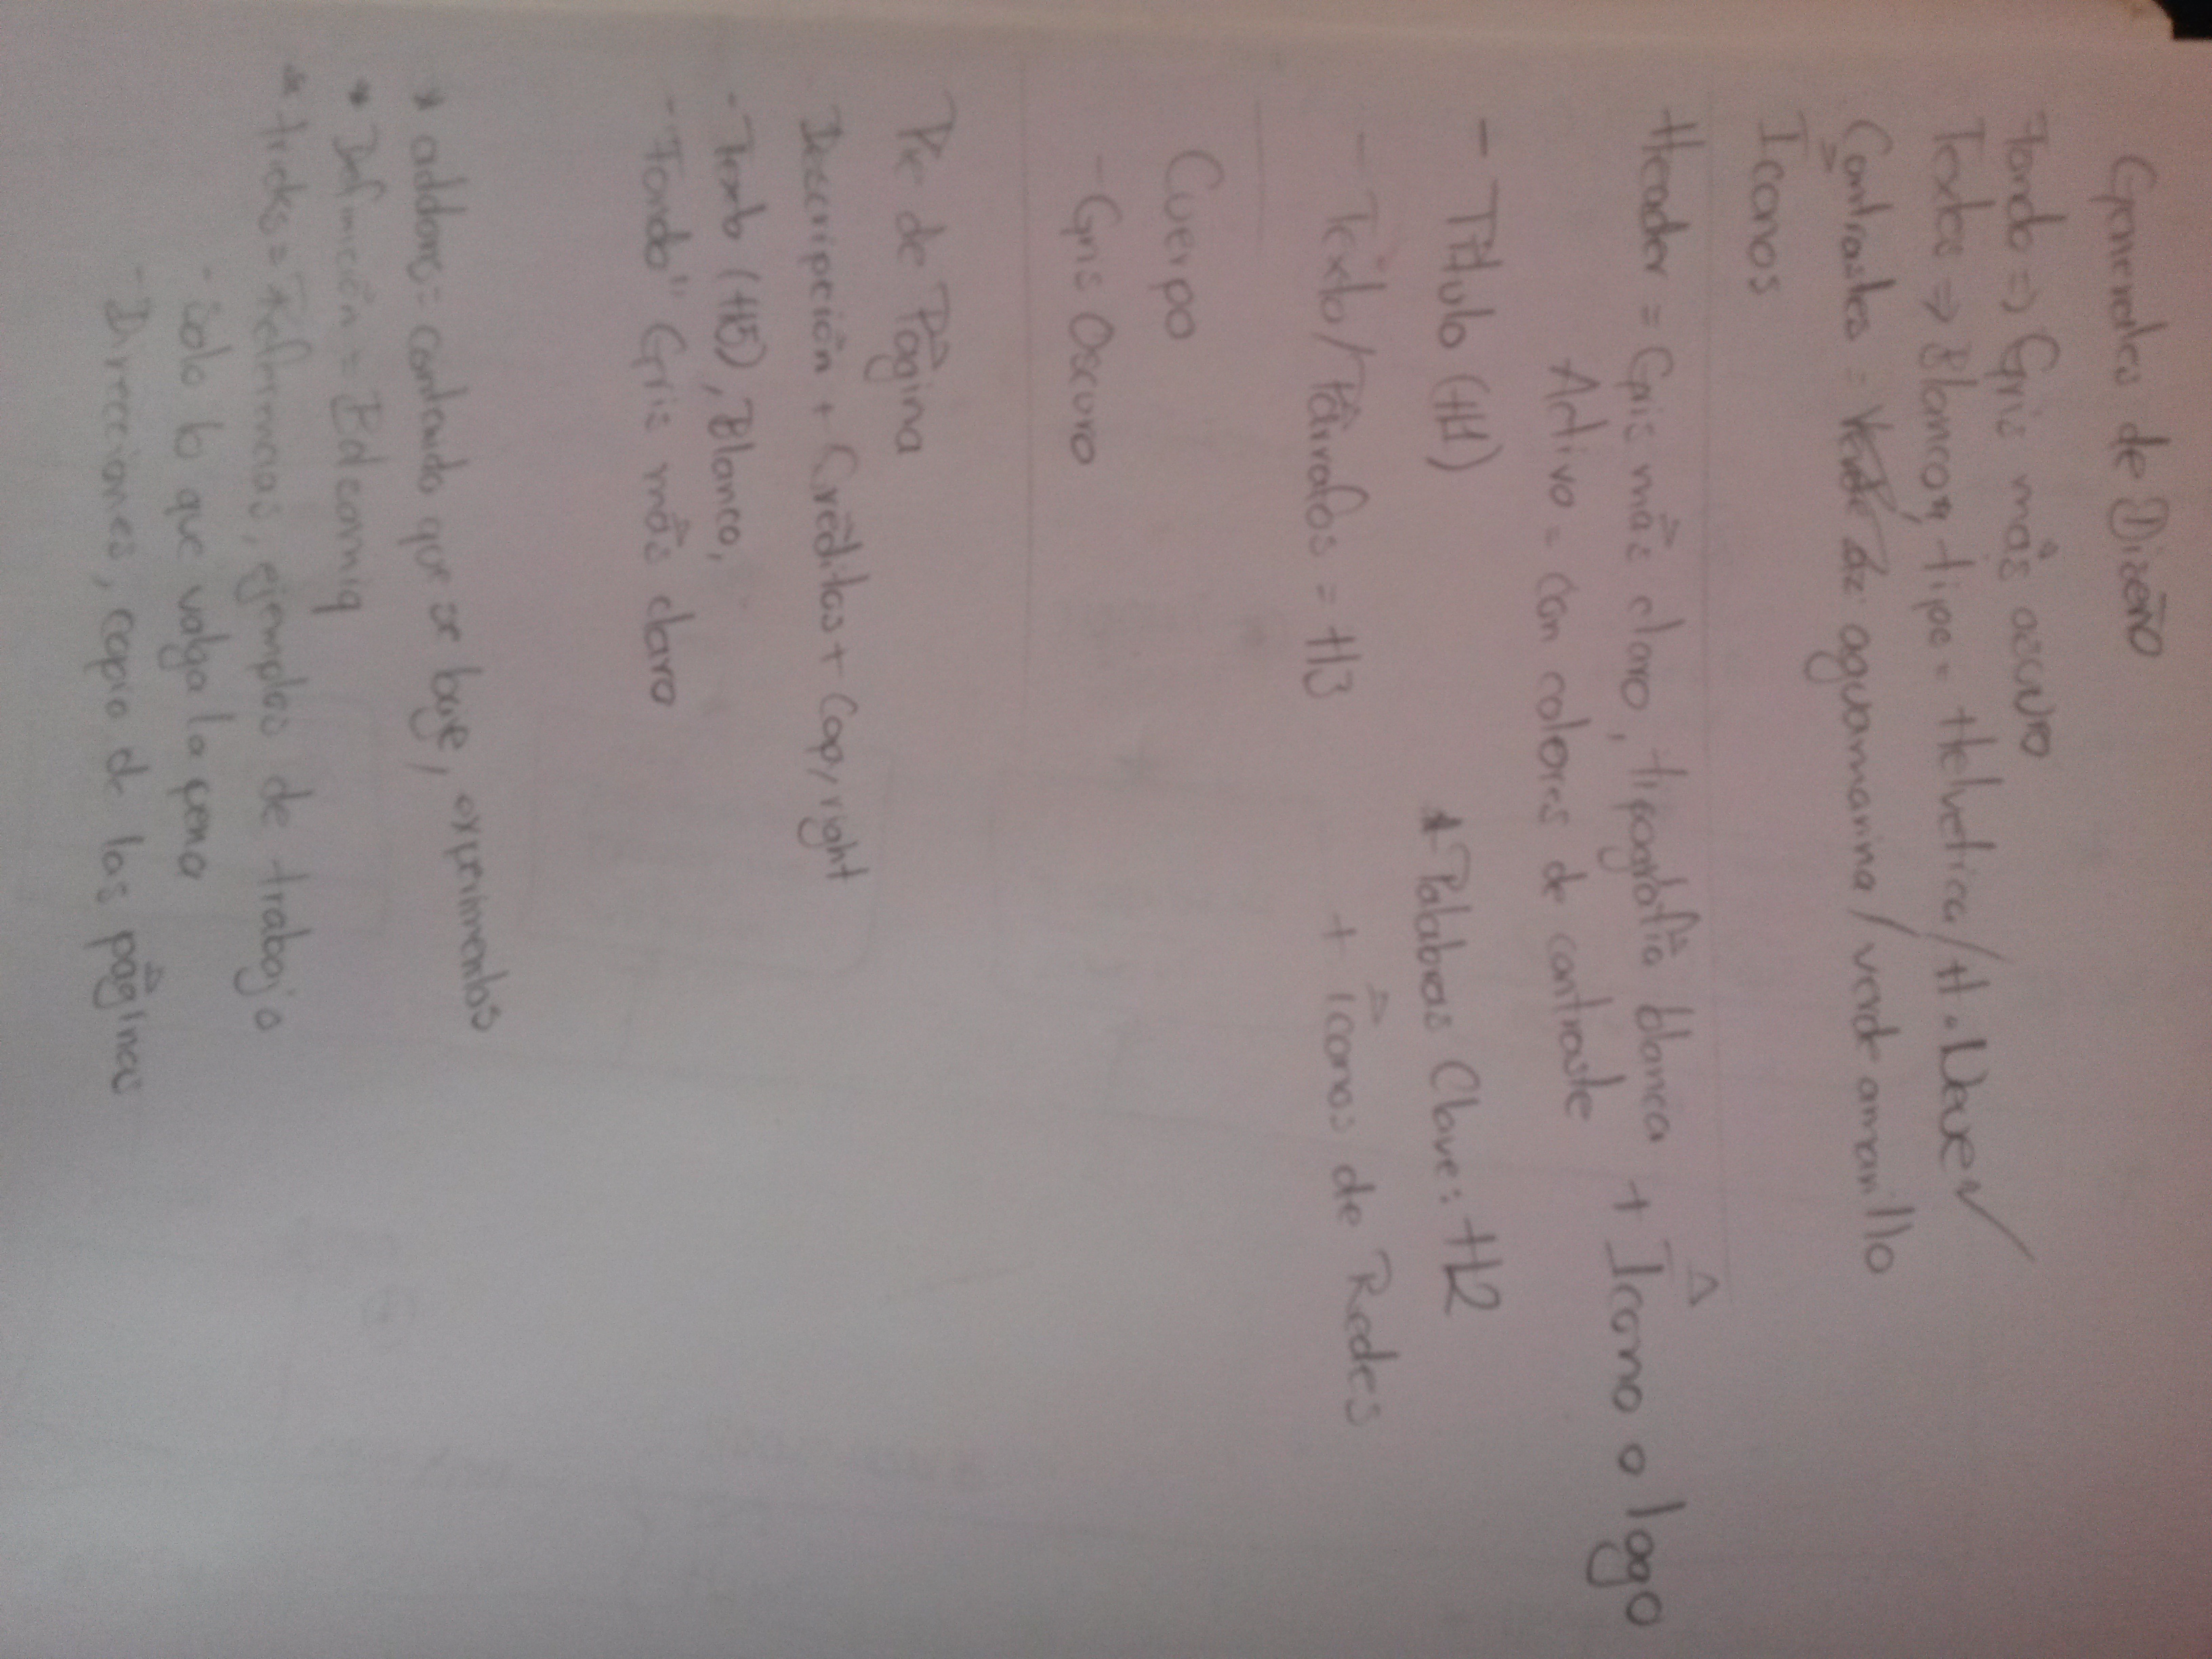 Generales de Diseño
Fondo => Gris más oscuro
Textos => Blancos, tipo = Helvetica / H. Neue ✓
Contrastes = aguamarina / verde amarillo
Iconos
Header = Gris más claro, tipografía blanca + Icono o logo
Activo = con colores de contraste
- Título (H1) * Palabras Clave: H2
- Texto/Párrafos = H3 + iconos de Redes
Cuerpo
- Gris Oscuro
Pie de Página
Descripción + Créditos + Copyright
- Texto (H5), Blanco,
- "Fondo" Gris más claro
* addons = contenido que se baje, experimentos
* Definición =
* tricks = Referencias, ejemplos de trabajo
- solo lo que valga la pena
- Direcciones, copio de las páginas